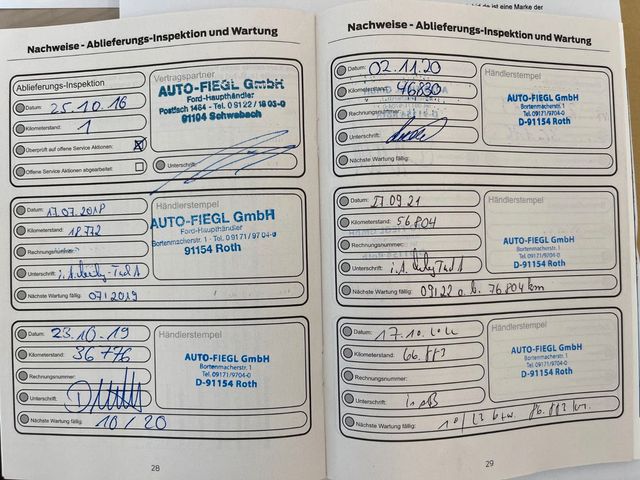 d da ist eine Marke der
Nachweise - Ablieferungs-Inspektion und Wartung
Ablieferungs-Inspektion
Datum: 25.10.16
Kilometerstand: 1
Überprüft auf offene Service Aktionen:
Offene Service Aktionen abgearbeitet:
Vertragspartner
AUTO-FIEGL GmbH
Ford-Haupthändler
Postfach 1464 - Tel. 0 91 22 / 18 03-0
91104 Schwabach
Unterschrift:
Datum: 17.07.2018
Kilometerstand: 18772
Rechnungsnummer:
Unterschrift: i.A.
Nächste Wartung fällig: 07/2019
Händlerstempel
AUTO-FIEGL GmbH
Ford-Haupthändler
Bortenmacherstr. 1 · Tel. 0 91 71 / 97 04-0
91154 Roth
Datum: 23.10.19
Kilometerstand: 36776
Rechnungsnummer:
Unterschrift:
Nächste Wartung fällig: 10/20
Händlerstempel
AUTO-FIEGL GmbH
Bortenmacherstr. 1
Tel. 09171/9704-0
D-91154 Roth
28
Nachweise - Ablieferungs-Inspektion und Wartung
Datum: 02.11.20
Kilometerstand: 46830
Rechnungsnummer:
Unterschrift:
Nächste Wartung fällig:
Händlerstempel
AUTO-FIEGL GmbH
Bortenmacherstr. 1
Tel. 09171/9704-0
D-91154 Roth
Datum: 27.09.21
Kilometerstand: 56.804
Rechnungsnummer:
Unterschrift: i.A.
Nächste Wartung fällig: 09/22 o. b. 76.804 km
Händlerstempel
AUTO-FIEGL GmbH
Bortenmacherstr. 1
Tel. 09171/9704-0
D-91154 Roth
Datum: 17.10.2022
Kilometerstand: 66.883
Rechnungsnummer:
Unterschrift:
Nächste Wartung fällig: 10/23 bzw. 86.883 km.
Händlerstempel
AUTO-FIEGL GmbH
Bortenmacherstr. 1
Tel. 09171/9704-0
D-91154 Roth
29